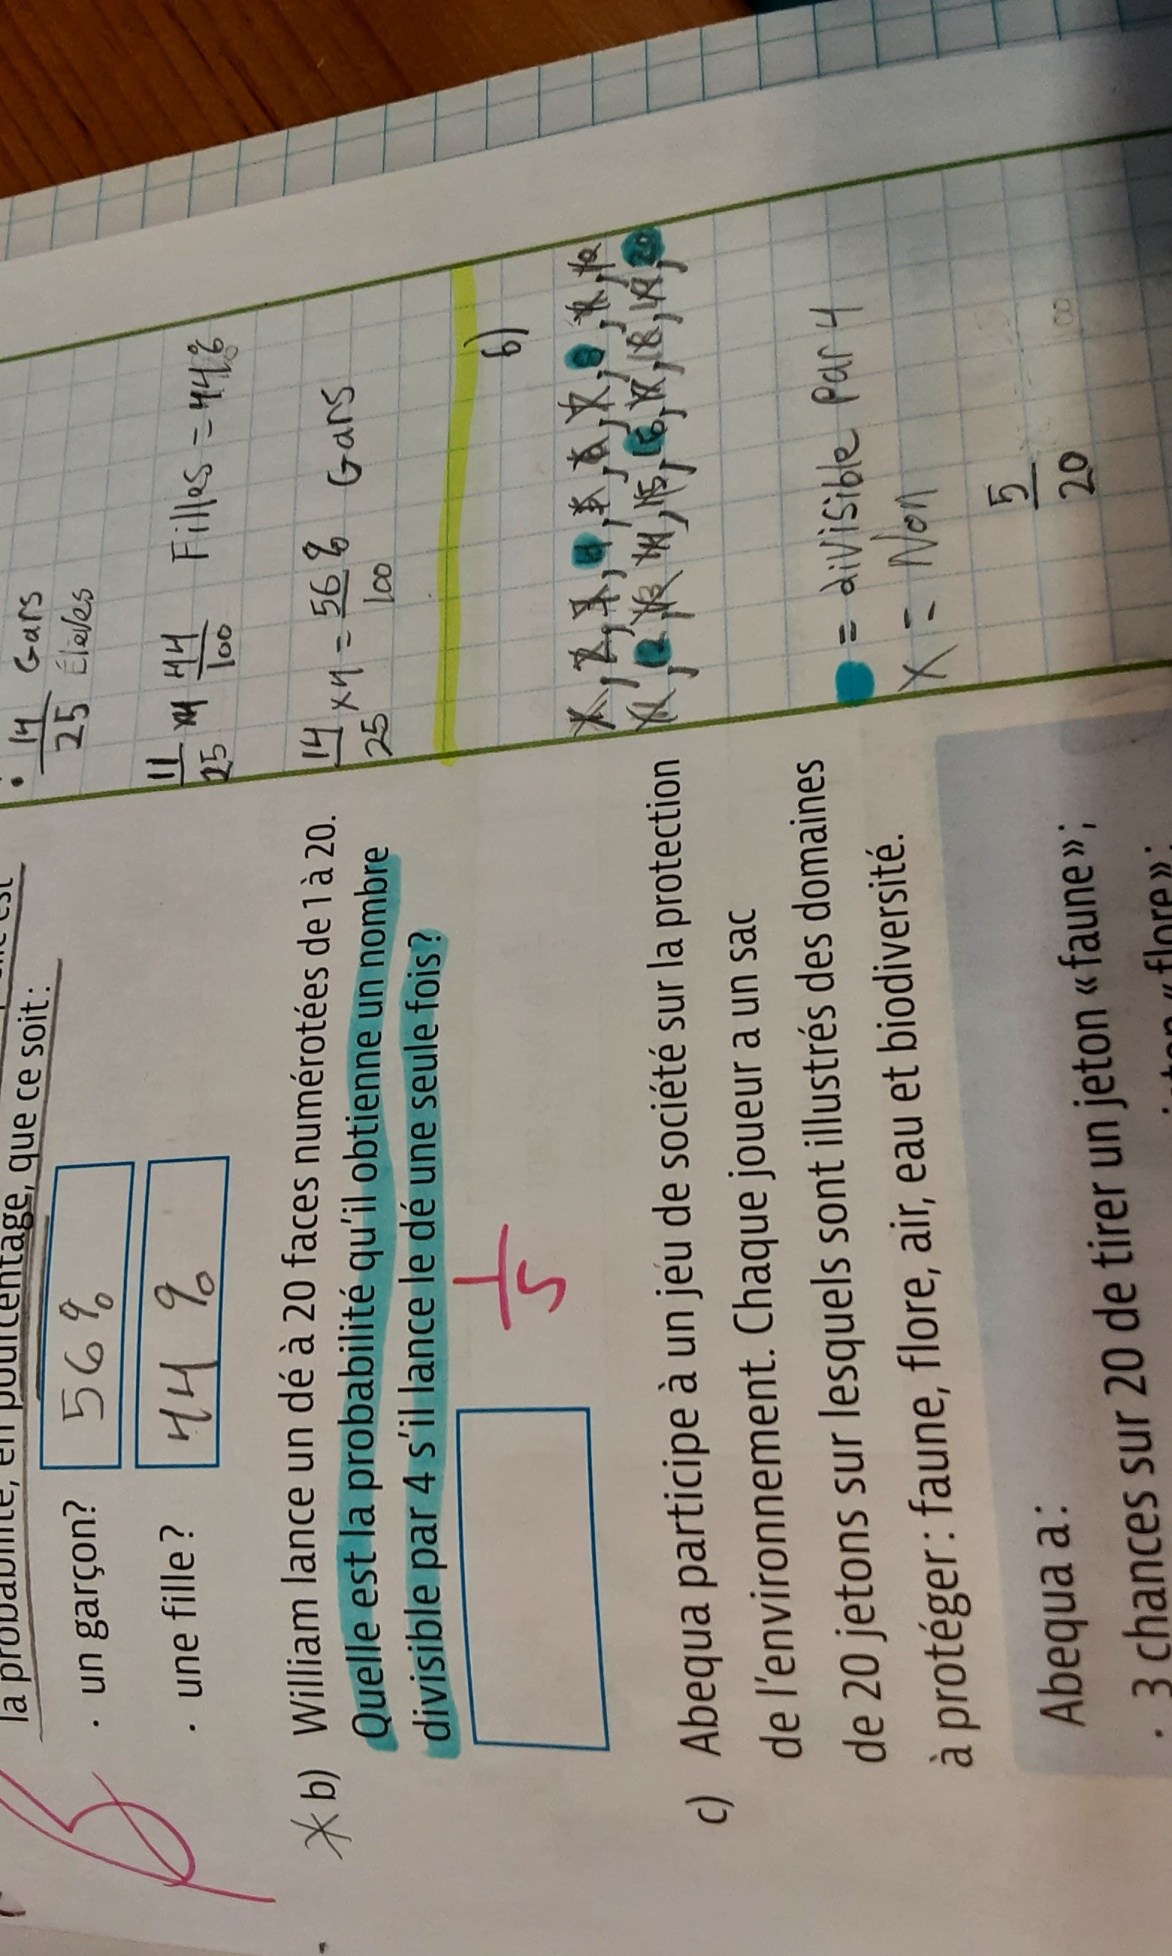 la probabilité, en pourcentage, que ce soit:
· un garçon? 56%
· une fille? 44%
b) William lance un dé à 20 faces numérotées de 1 à 20.
Quelle est la probabilité qu'il obtienne un nombre
divisible par 4 s'il lance le dé une seule fois?
1/5
c) Abequa participe à un jeu de société sur la protection
de l'environnement. Chaque joueur a un sac
de 20 jetons sur lesquels sont illustrés des domaines
à protéger : faune, flore, air, eau et biodiversité.
Abequa a:
· 3 chances sur 20 de tirer un jeton «faune»;
«flore»;
· 14/25 Gars Élèves
11/25 ×4 44/100 Filles = 44%
14/25 ×4 = 56/100 % Gars
b)
= divisible par 4
X = Non
5/20